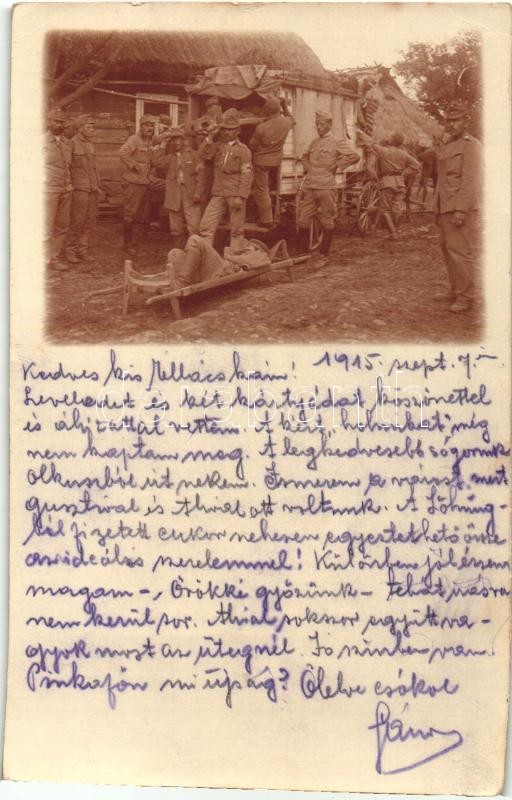 Kedves kis Mellácskám! 1915. szept. 7-
Leveledet és két kártyádat köszönettel
és áhítattal vettem. A kért még
nem kaptam meg. A legkedvesebb sógornak
Olkuszból írt nekem. Ismerem a várost, mert
Gusztival és Thival ott voltunk. A Löhnung-
ból fizetett cukor nehezen egyeztethető össze
az ideális szerelemmel! Különben jól érzem
magam -, Örökké győzünk - tehát másra
nem kerül sor. Thival sokszor együtt va-
gyok most az ütegnél. Jó színben van.
Pinkafőn mi újság? Ölelve csókol
János
darabanth